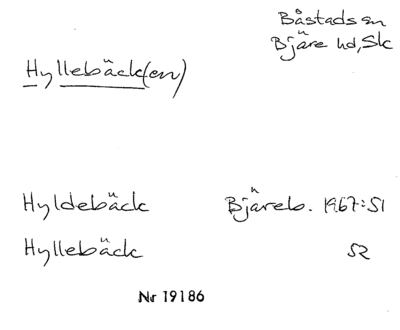 Båstads sn
Bjäre hd, Sk
Hyllebäck(en)
Hyldebäck Bjäreb. 1967:51
Hyllebäck 52
Nr 19186